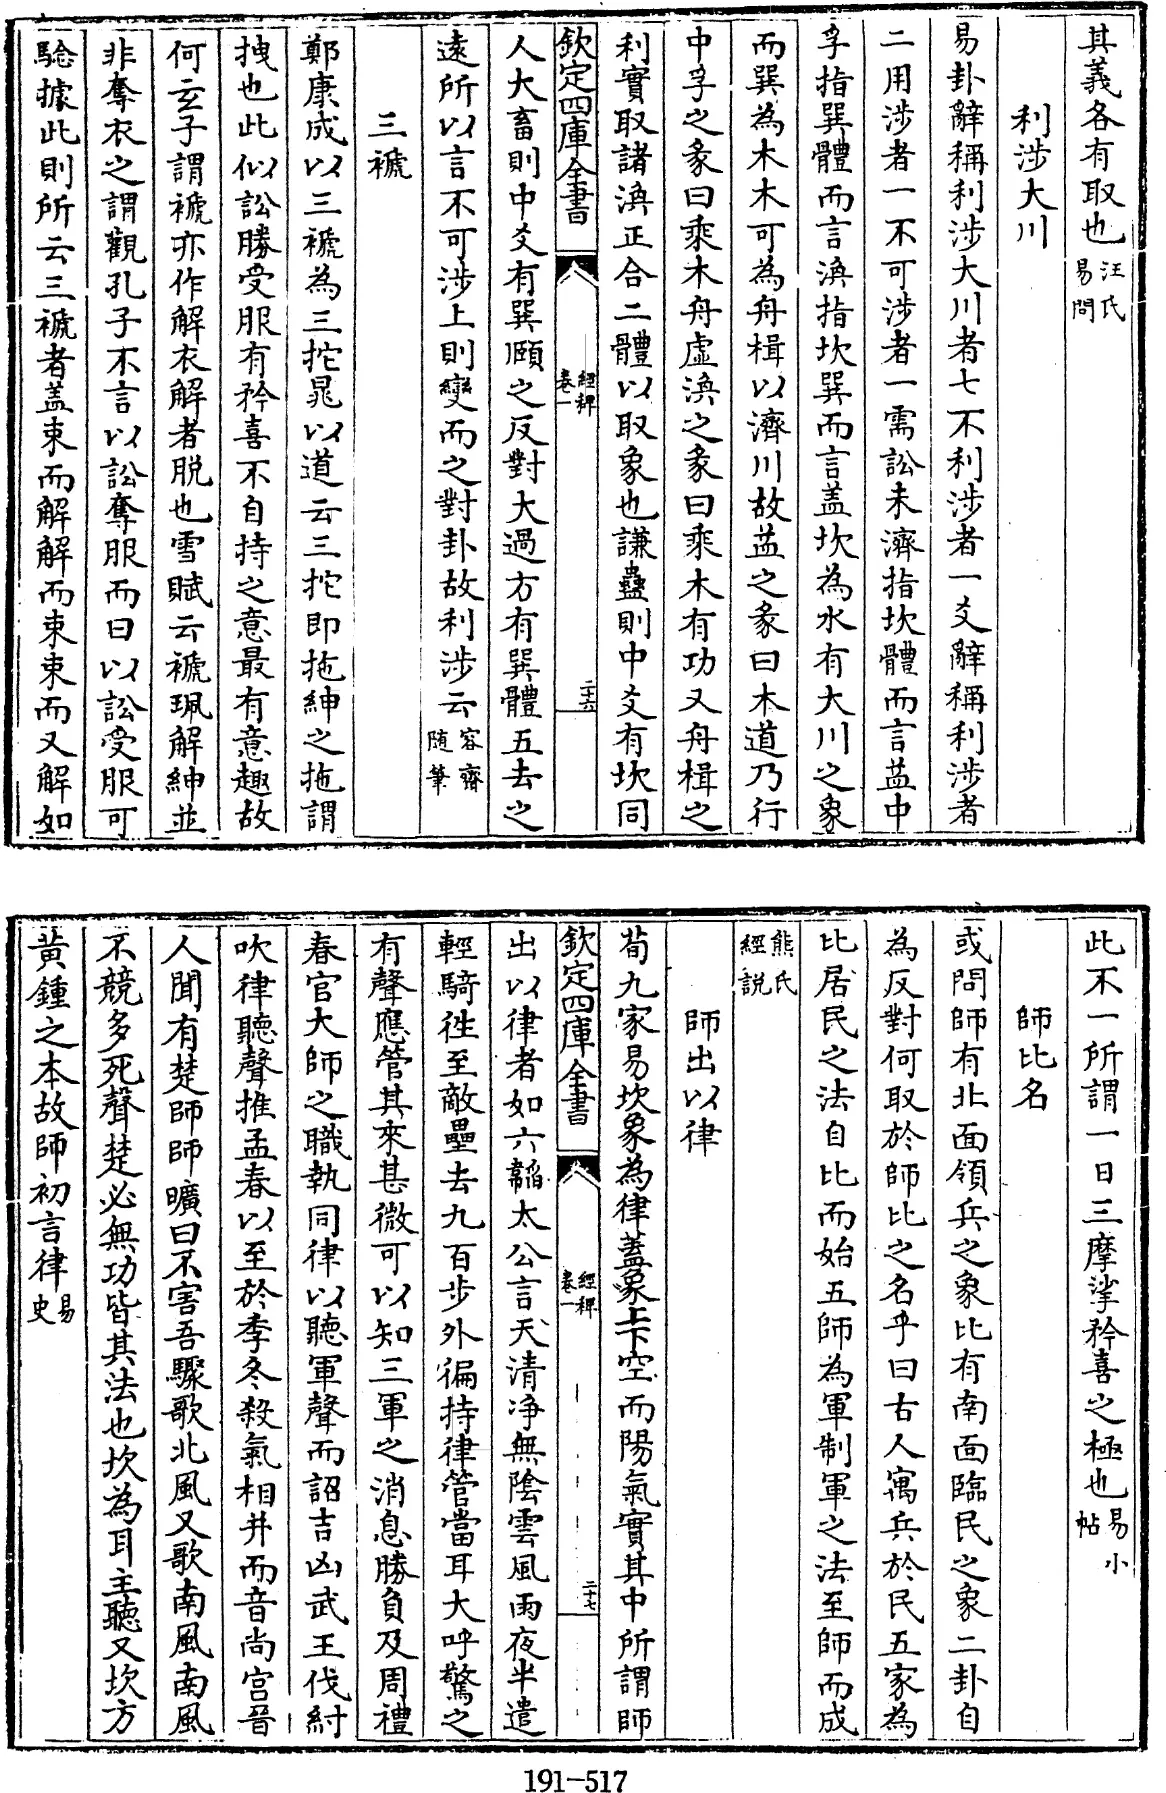 其義各有取也汪氏易問
利涉大川
易卦辭稱利涉大川者七不利涉者一爻辭稱利涉者
二用涉者一不可涉者一需訟未濟指坎體而言益中
孚指巽體而言渙指坎巽而言盖坎為水有大川之象
而巽為木木可為舟楫以濟川故益之彖曰木道乃行
中孚之彖曰乘木舟虛渙之彖曰乘木有功又舟楫之
利實取諸渙正合二體以取象也謙蠱則中爻有坎同
欽定四庫全書
經稗
卷一
二十六
人大畜則中爻有巽頤之反對大過方有巽體五去之
遠所以言不可涉上則變而之對卦故利涉云容齋随筆
三褫
鄭康成以三褫為三拕晁以道云三拕即拖紳之拖謂
拽也此似訟勝受服有矜喜不自持之意最有意趣故
何玄子謂褫亦作解衣解者脱也雪賦云褫珮解紳並
非奪衣之謂觀孔子不言以訟奪服而曰以訟受服可
騐據此則所云三褫者盖束而解解而束束而又解如
此不一所謂一日三摩挲矜喜之極也易小帖
師比名
或問師有北面領兵之象比有南面臨民之象二卦自
為反對何取於師比之名乎曰古人寓兵於民五家為
比居民之法自比而始五師為軍制軍之法至師而成
熊氏經説
師出以律
荀九家易坎象為律蓋象上下空而陽氣實其中所謂師
欽定四庫全書
經稗
卷一
二十七
出以律者如六韜太公言天清净無陰雲風雨夜半遣
輕騎徃至敵壘去九百步外徧持律管當耳大呼驚之
有聲應管其來甚微可以知三軍之消息勝負及周禮
春官大師之職執同律以聽軍聲而詔吉凶武王伐紂
吹律聽聲推孟春以至於季冬殺氣相并而音尚宫晉
人聞有楚師師曠曰不害吾驟歌北風又歌南風南風
不競多死聲楚必無功皆其法也坎為耳主聽又坎方
黃鍾之本故師初言律易史
191-517